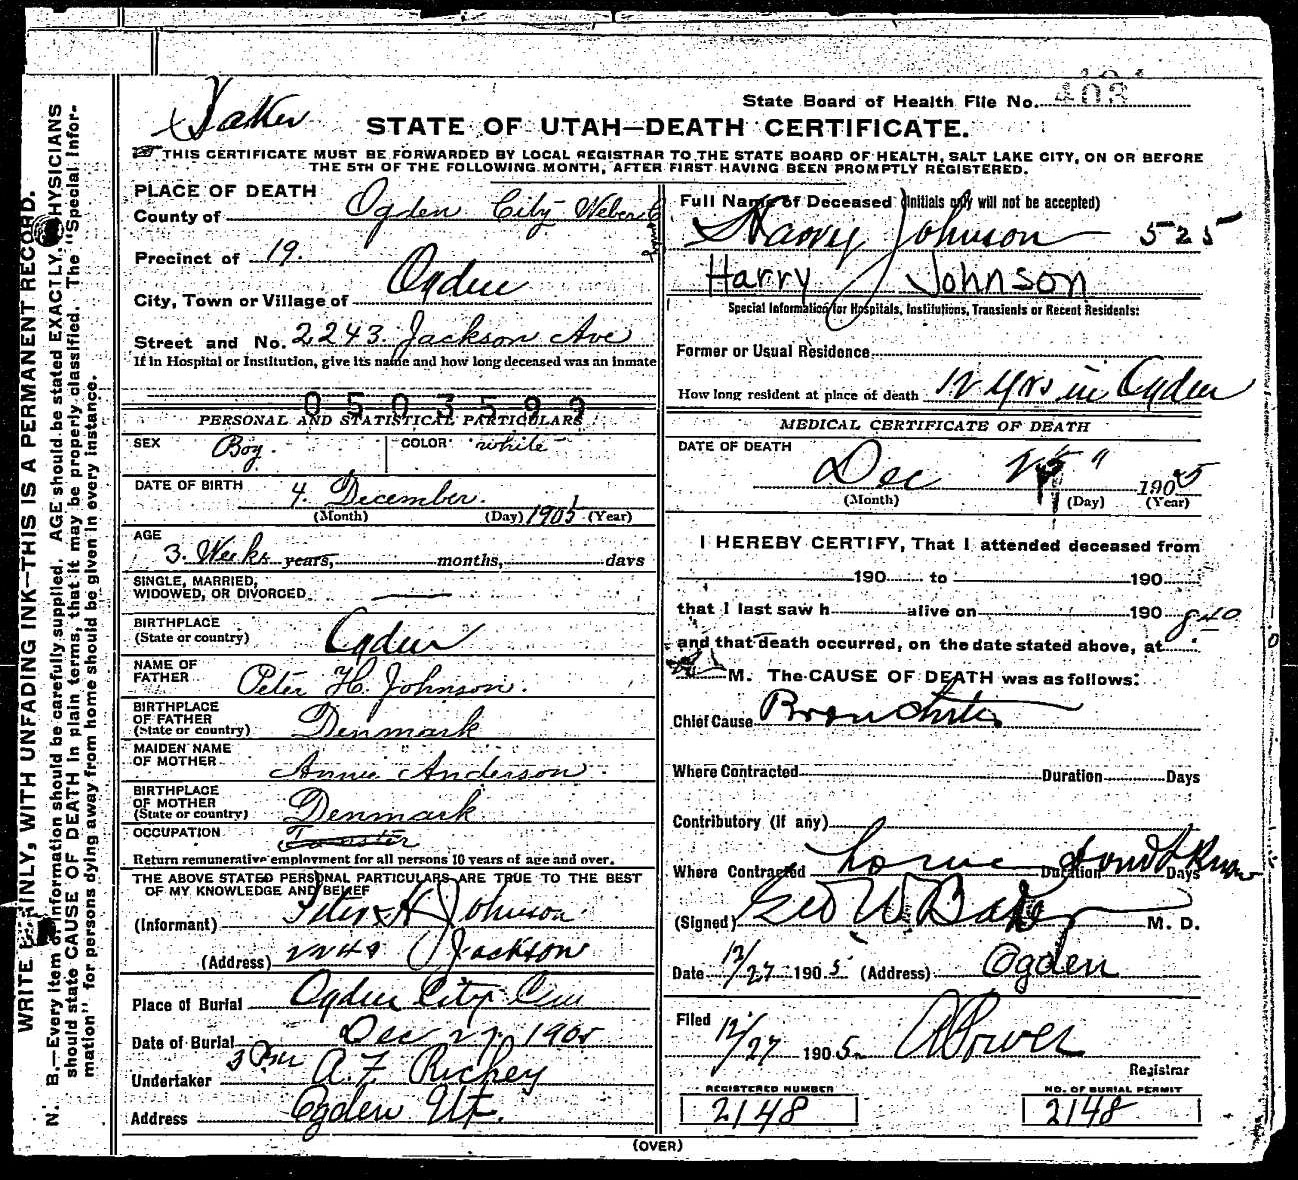 403
State Board of Health File No.
STATE OF UTAH—DEATH CERTIFICATE.
THIS CERTIFICATE MUST BE FORWARDED BY LOCAL REGISTRAR TO THE STATE BOARD OF HEALTH, SALT LAKE CITY, ON OR BEFORE
THE 5TH OF THE FOLLOWING MONTH, AFTER FIRST HAVING BEEN PROMPTLY REGISTERED.
WRITE PLAINLY, WITH UNFADING INK—THIS IS A PERMANENT RECORD.
N. B.—Every item of information should be carefully supplied. AGE should be stated EXACTLY. PHYSICIANS
should state CAUSE OF DEATH in plain terms, that it may be properly classified. The "Special Infor-
mation" for persons dying away from home should be given in every instance.
PLACE OF DEATH
County of Ogden City Weber
Precinct of 19.
City, Town or Village of Ogden
Street and No. 2243. Jackson Ave
If in Hospital or Institution, give its name and how long deceased was an inmate
0503599
PERSONAL AND STATISTICAL PARTICULARS
SEX Boy. COLOR white
DATE OF BIRTH 4. December. 1905
(Month) (Day) (Year)
AGE
3. Weeks years, months, days
SINGLE, MARRIED,
WIDOWED, OR DIVORCED
BIRTHPLACE
(State or country) Ogden
NAME OF
FATHER Peter H. Johnson.
BIRTHPLACE
OF FATHER
(State or country) Denmark
MAIDEN NAME
OF MOTHER Annie Anderson.
BIRTHPLACE
OF MOTHER
(State or country) Denmark
OCCUPATION Teamster
Return remunerative employment for all persons 10 years of age and over.
THE ABOVE STATED PERSONAL PARTICULARS ARE TRUE TO THE BEST
OF MY KNOWLEDGE AND BELIEF
(Informant) Peter H Johnson
(Address) Jackson
Place of Burial Ogden City Cem
Date of Burial Dec 27 1905
Undertaker A. F. Richey
Address Ogden Ut.
Full Name of Deceased (Initials only will not be accepted)
Harry Johnson 525
Harry Johnson
Special Information for Hospitals, Institutions, Transients or Recent Residents:
Former or Usual Residence
How long resident at place of death 12 Yrs in Ogden
MEDICAL CERTIFICATE OF DEATH
DATE OF DEATH
Dec 1905
(Month) (Day) (Year)
I HEREBY CERTIFY, That I attended deceased from
190 to 190
that I last saw h alive on 190
and that death occurred, on the date stated above, at 8 40
M. The CAUSE OF DEATH was as follows:
Chief Cause Bronchitis
Where Contracted Duration Days
Contributory (if any)
Where Contracted home Duration dont know Days
(Signed) Geo W Baker M. D.
Date 12/27 1905 (Address) Ogden
Filed 12/27 1905
Registrar
REGISTERED NUMBER NO. OF BURIAL PERMIT
2148 2148
(OVER)